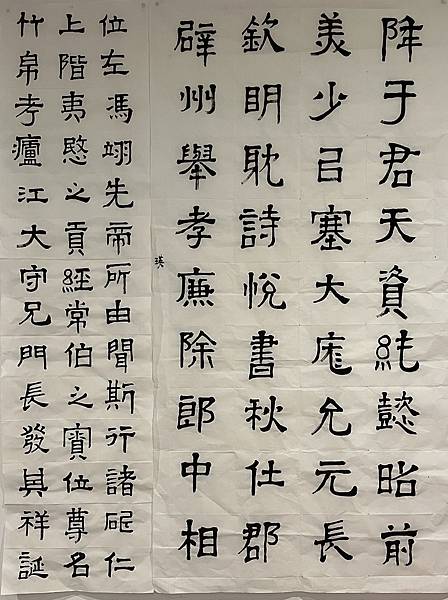 降于君天資純懿昭前
美少㠯塞大庬允元長
欽明耽詩悅書秋仕郡
辟州舉孝廉除郎中相
瑛
位左馮翊先帝所由聞斯行諸砥仁
上階夷愍之貢經常伯之寶位尊名
竹帛考廬江大守兄門長發其祥誕